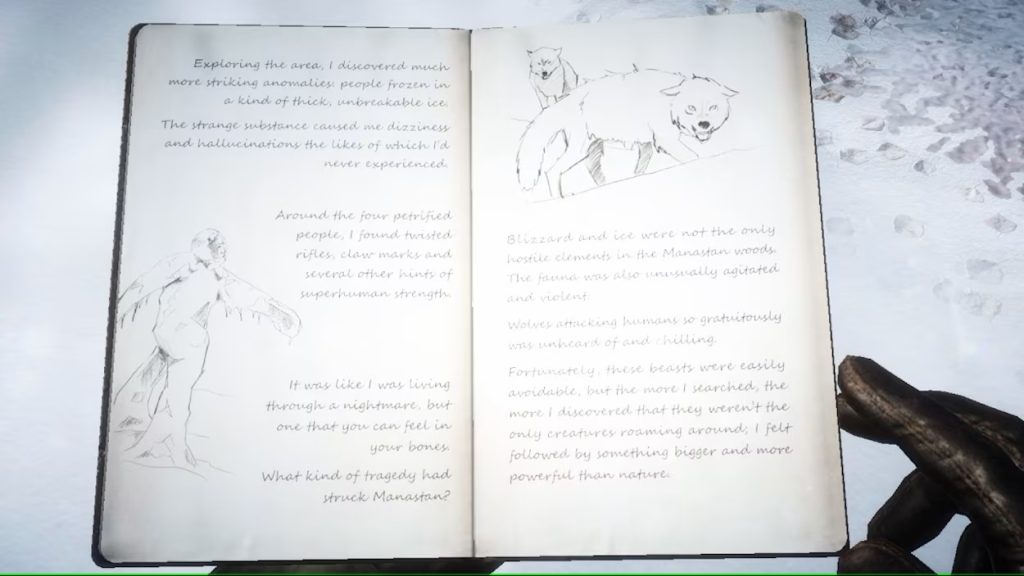 Exploring the area, I discovered much
more striking anomalies: people frozen in
a kind of thick, unbreakable ice.
The strange substance caused me dizziness
and hallucinations the likes of which I'd
never experienced.
Around the four petrified
people, I found twisted
rifles, claw marks and
several other hints of
superhuman strength.
It was like I was living
through a nightmare, but
one that you can feel in
your bones.
What kind of tragedy had
struck Manastan?
Blizzard and ice were not the only
hostile elements in the Manastan woods.
The fauna was also unusually agitated
and violent.
Wolves attacking humans so gratuitously
was unheard of and chilling.
Fortunately, these beasts were easily
avoidable, but the more I searched, the
more I discovered that they weren't the
only creatures roaming around; I felt
followed by something bigger and more
powerful than nature.